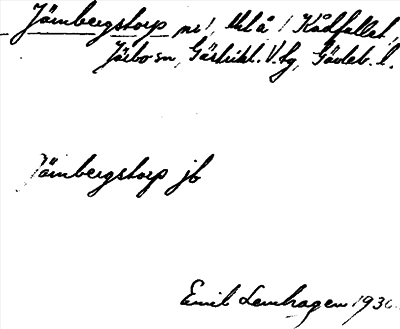 Järnbergstorp nr 1, Utl å 1 Kådfallet,
Järbo sn, Gästrikl. V. tg, Gävleb. l.
Järnbergstorp jb
Emil Lenhagen 1930.